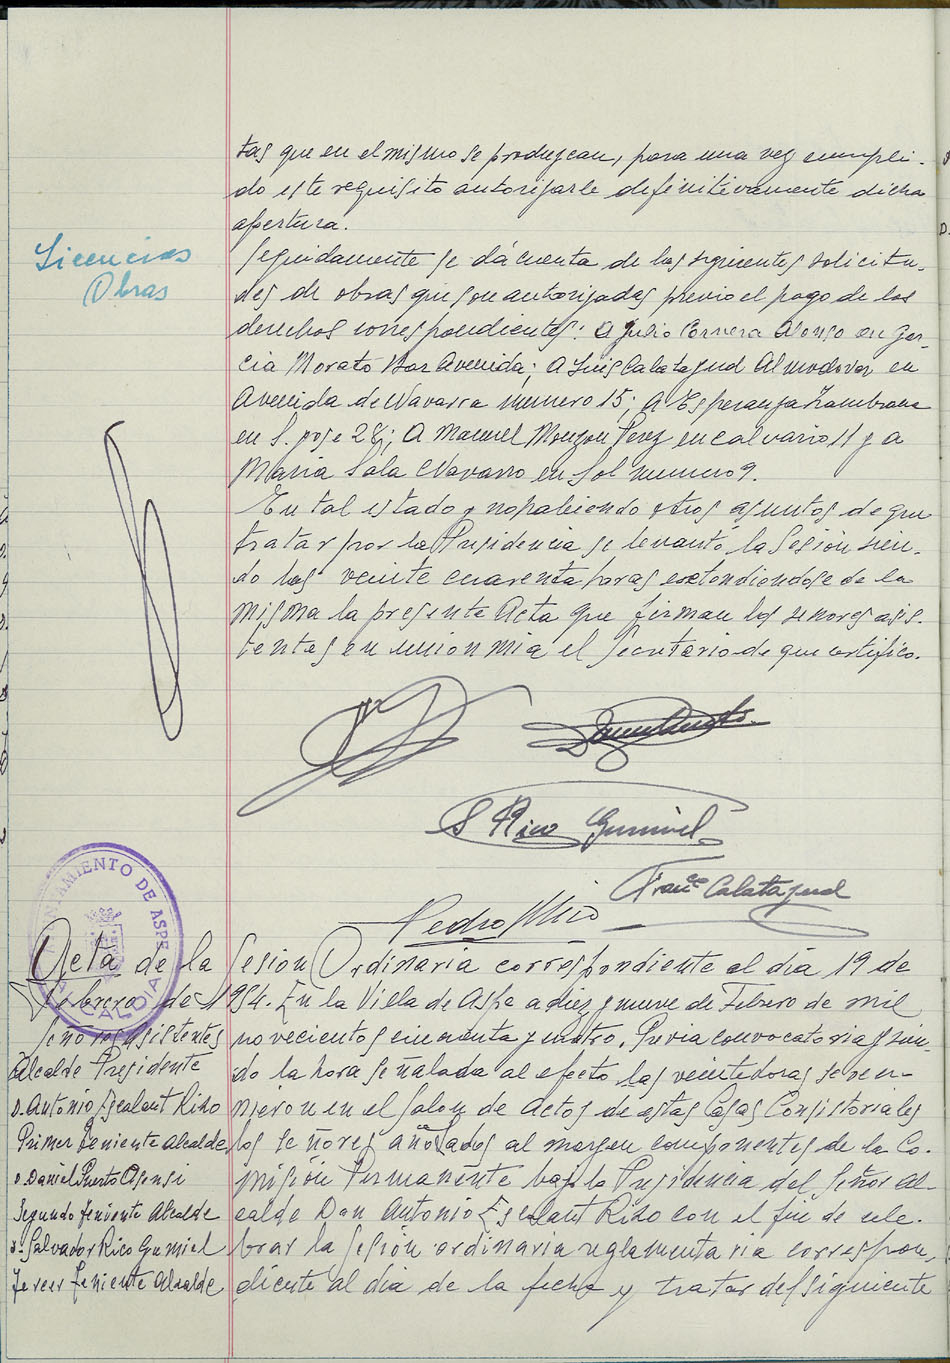 tas que en el mismo se produzcan, para una vez cumpli-
do este requisito autorizarle definitivamente dicha
apertura.
Licencias
Obras
Seguidamente se dá cuenta de las siguientes solicitu-
des de obras que son autorizadas previo el pago de los
derechos correspondientes: a Julio Correra Alonso en Gar-
cia Morato Bar Avenida; a Luis Calatayud Almodovar en
Avenida de Navarra numero 15; A Esperanza Zambrana
en S. jose 28; A Manuel Monzon Perez en calvario 11 y a
Maria Sala Navarro en Sol numero 9.
En tal estado y no habiendo otros asuntos de que
tratar por la Presidencia se levantó la Sesion sien-
do las veinte cuarenta horas extendiendose de la
misma la presente Acta que firman los señores asis-
tentes en union mia el Secretario de que certifico.
S Rico Gumiel
Franco Calatayud
Pedro Mico
AYUNTAMIENTO DE ASPE
ALCALDIA
Acta de la Sesion Ordinaria correspondiente al dia 19 de
Febrero de 1954. En la Villa de Aspe a diez y nueve de Febrero de mil
novecientos cincuenta y cuatro. Previa convocatoria y sien-
do la hora señalada al efecto las veinte horas se reu-
nieron en el Salon de Actos de estas Casas Consistoriales
los señores añotados al margen componentes de la Co-
mision Permanente bajo la Presidencia del Señor Al-
calde Don Antonio Escalant Riko con el fin de cele-
brar la sesion ordinaria reglamentaria correspon-
diente al dia de la fecha y tratar del siguiente
Señores asistentes
Alcalde Presidente
D. Antonio Escalant Riko
Primer Teniente Alcalde
D. Daniel Puerto Asensi
Segundo Teniente Alcalde
D. Salvador Rico Gumiel
Tercer Teniente Alcalde